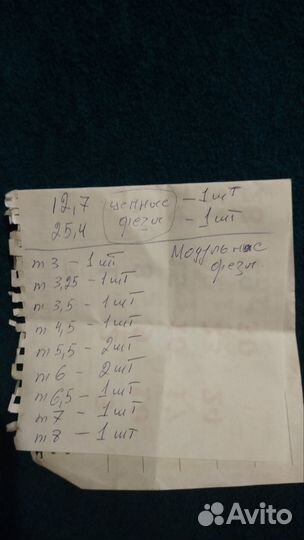 12,7 цепные – 1 шт
25,4 фрезы – 1 шт
Модульные
фрезы
m 3 – 1 шт
m 3,25 – 1 шт
m 3,5 – 1 шт
m 4,5 – 1 шт
m 5,5 – 2 шт
m 6 – 2 шт
m 6,5 – 1 шт
m 7 – 1 шт
m 8 – 1 шт
Avito